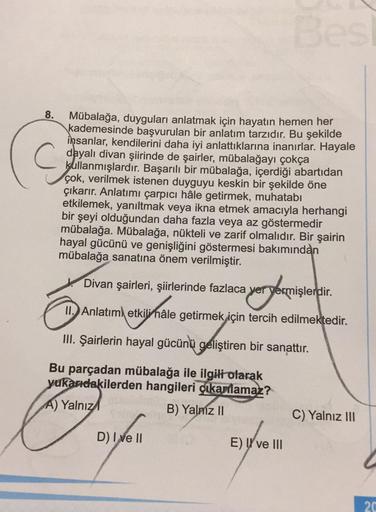 Besl
8. Mübalağa, duyguları anlatmak için hayatın hemen her
kademesinde başvurulan bir anlatım tarzıdır. Bu şekilde
insanlar, kendilerini daha iyi anlattıklarına inanırlar. Hayale
dayalı divan şiirinde de şairler, mübalağayı çokça
kullanmışlardır. Başarılı bir mübalağa, içerdiği abartıdan
çok, verilmek istenen duyguyu keskin bir şekilde öne
çıkarır. Anlatımı çarpıcı hâle getirmek, muhatabı
etkilemek, yanıltmak veya ikna etmek amacıyla herhangi
bir şeyi olduğundan daha fazla veya az göstermedir
mübalağa. Mübalağa, nükteli ve zarif olmalıdır. Bir şairin
hayal gücünü ve genişliğini göstermesi bakımından
mübalağa sanatına önem verilmiştir.
I. Divan şairleri, şiirlerinde fazlaca yer vermişlerdir.
II. Anlatımı etkili hâle getirmek için tercih edilmektedir.
III. Şairlerin hayal gücünü geliştiren bir sanattır.
Bu parçadan mübalağa ile ilgili olarak
yukarıdakilerden hangileri çıkarılamaz?
A) Yalnız I B) Yalnız II C) Yalnız III
D) I ve II E) II ve III
20